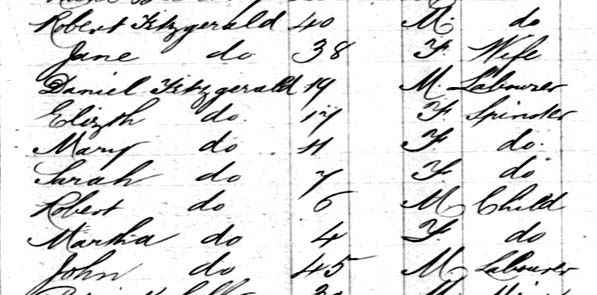 Robert Fitzgerald 40 M. do
Jane do 38 F. Wife
Daniel Fitzgerald 19 M. Labourer
Elizth do 17 F. Spinster
Mary do 11 F. do
Sarah do 7 F. do
Robert do 6 M. Child
Martha do 4 F. do
John do 45 M. Labourer